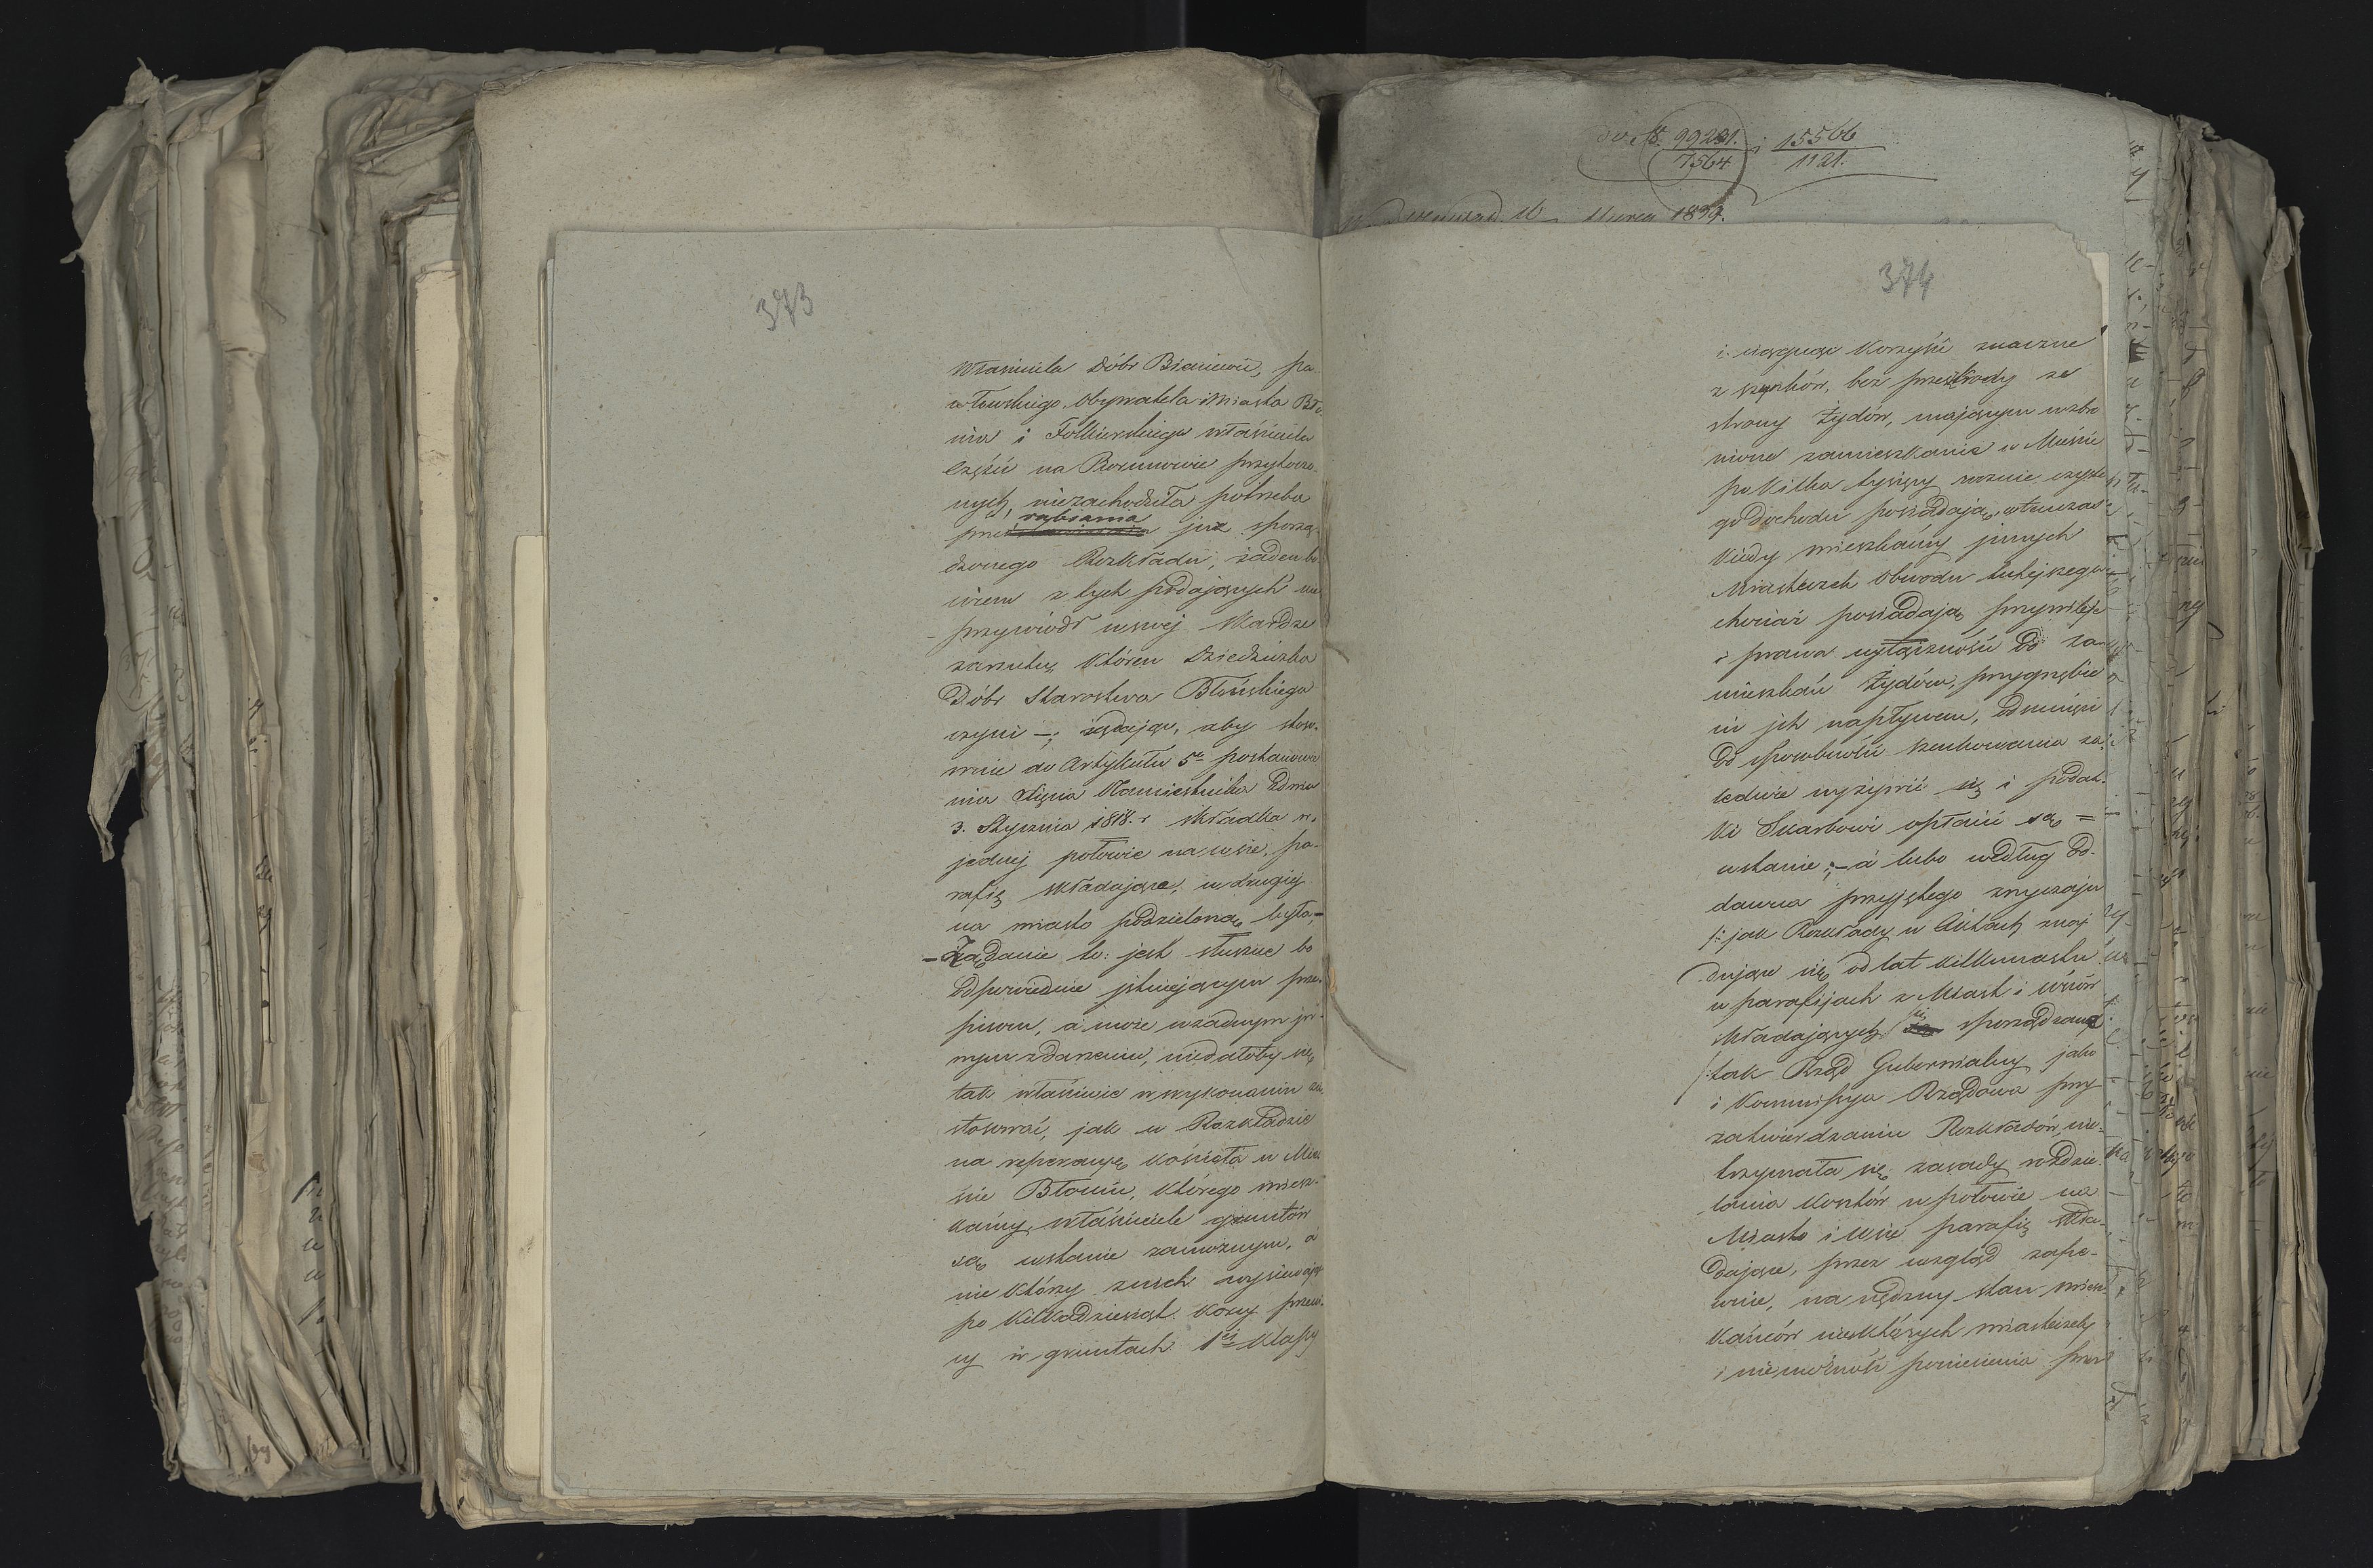 373
Właściciela Dóbr Bieniewic, Pa
włowskiego, Obywatela Miasta Bło
nia i Folkierskiego właściciela
Części na Rokitnie przytoczo
nych, niezachodziła potrzeba
rabiania
prze już sporzą
dzonego Rozkładu, żaden bo
wiem z tych podających nie
przywiódł w swej skardze
zarzutu, któren Dziedziczka
Dóbr Starostwa Błońskiego
czyni –; żądając, aby stoso-
wnie do Artykułu 5o postanowie
nia Xięcia Namiestnika z dnia
3. Stycznia 1818. r składka w
jednej połowie na wsie, pa-
rafię składające, w drugiej
na miasto podzieloną była, –
– Żądanie to: jest słuszne bo
odpowiednie istniejącym prze-
pisom, a może w żadnym in-
nym zdarzeniu, niedałoby się
tak właściwie w wykonaniu za
stosować, jak w Rozkładzie
na reperacyę kościoła w Mie
ście Błoniu, którego miesz-
kańcy, właściciele gruntów
są w stanie zamożnym, a
niektórzy z nich wysiewają
po kilkadziesiąt korcy psze
cy w gruntach 1ej klassy
do N. 99221./7564 i 15566/1121.
Marca 1839.
374
i ciągnąc korzyści znaczne
z szynków, bez przeszkody ze
strony Żydów, mającym wzbro
nione zamieszkanie w Mieście
po kilka tysięcy rocznie czyste
go dochodu posiadają, wtenczas
kiedy mieszkańcy innych
Miasteczek Obwodu tutejszego
chociaż posiadają przywileje
i prawa wyłączności do za-
mieszkań Żydów, przygnębie
ni ich napływem, odsunięci
od sposobności szynkowania za
ledwie wyżywić się i podat-
ki Skarbowi opłacić są =
w stanie; – a lubo według od-
dawna przyjętego zwyczaju
/: jak Rozkłady w Aktach znaj
dujące się od lat kilkunastu
w parafijach z Miast i wsiów
składających się sporządzane
/: tak Rząd Gubernialny jako
i Kommissya Rządowa przy
zatwierdzaniu Rozkładów, nie-
trzymała się zasady rozdzie
lania kosztów w połowie na
Miasto i wsie parafię skła-
dające, przez wzgląd zape-
wnie, na nędzny stan miesz-
kańców niektórych miasteczek
i niemożność poniesienia przez